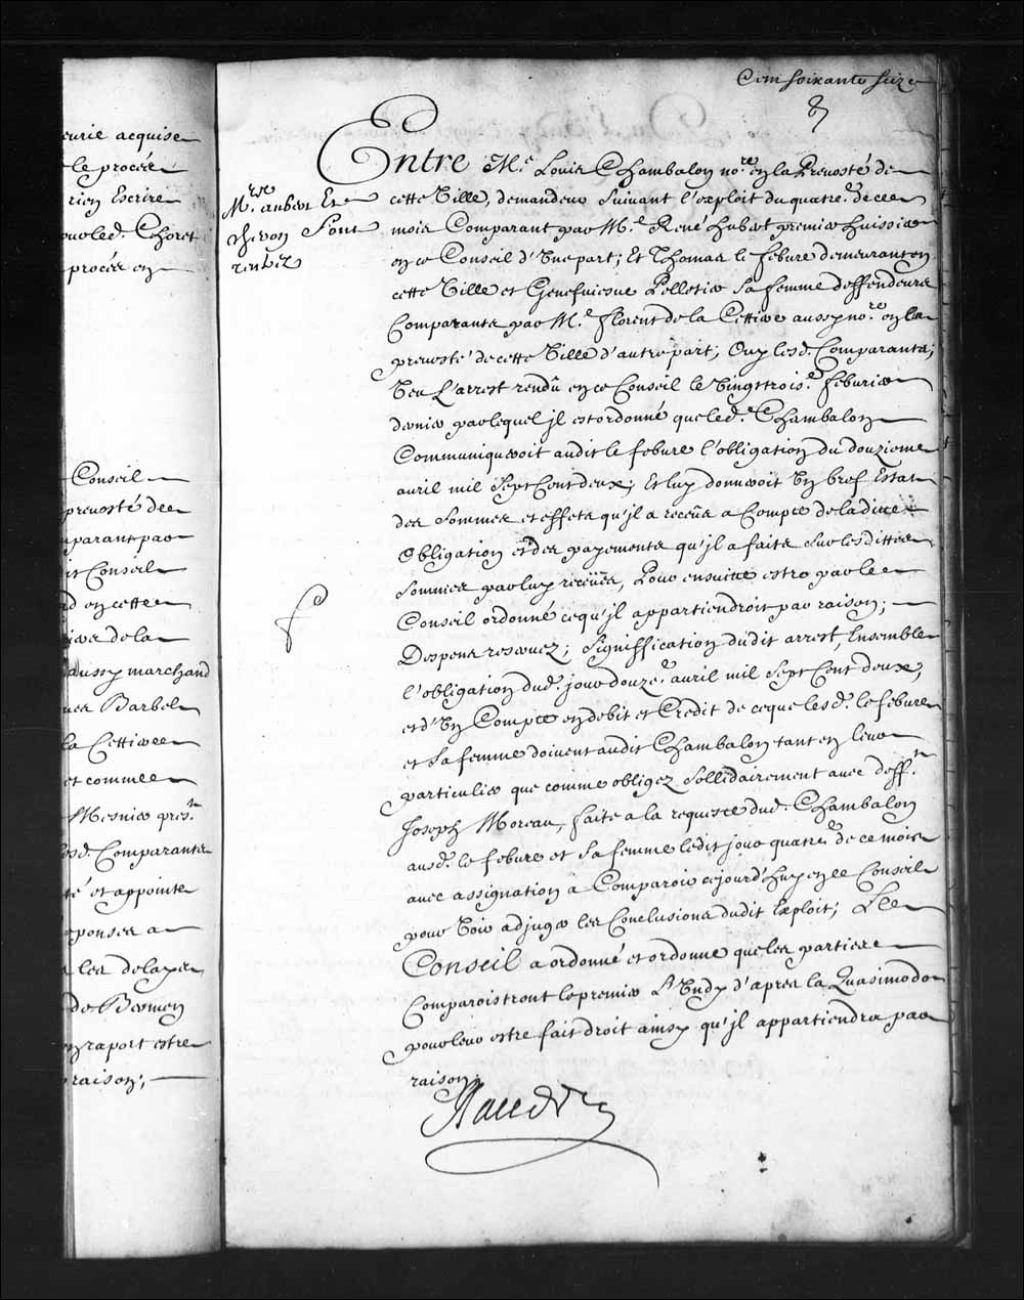 Cem soixante seize
eurie acquise
le procés
rien Escrire
pour led. Choret
procés en
Conseil
prevosté de
mparant par
it Conseil
d en cette
ivée de la
aussy marchand
ues Barbel
la Cettiere
et comme
Mesnier pres.nt
lesd. Comparants
té et appointe
ponses a
les delays
de Bermen
raport estre
raison;
Mrs. aubert Et
chevon Sont
rentrez
Entre Me. Louis Chambalon no.re en la Prevosté de
cette Ville, demandeur Suivant l'exploit du quatre.e de ce
mois Comparant par Me. René hubert premier huissier
en ce Conseil d'Une part; Et Thomas le febure demeurant en
cette Ville et Genefuiesue Pelletier Sa femme deffendeurs
Comparants par Me. florent de la Cettiere aussy no.re en la
prevosté de cette Ville d'autre part; Ouy lesd. Comparants;
Veu L'arrest rendû en ce Conseil le Vingttrois.e feburier
dernier par lequel jl est ordonné que led. Chambalon
Communiqueroit audit le febure l'obligation du douzieme
auril mil Sept Cent deux; Et luy donneroit Un bref Estat
des Sommes et effets qu'jl a receûs a Compte de la ditte
Obligation et des payements qu'jl a faits Sur les dittes
Sommes par luy receües, Pour ensuitte estre par le
Conseil ordonné ce qu'jl appartiendroit par raison;
Despens reservez; Signiffication dudit arrest, Ensemble
l'obligation dud. jour douze.e auril mil Sept Cent deux,
et d'Un Compte en debit et Credit de ce que lesd. le febure
et Sa femme doivent audit Chambalon tant en leur
particulier que comme obligez Sollidairement avec deff.nt
Joseph Moreau, faite a la requeste dud. Chambalon
ausd. le febure et Sa femme ledit jour quatre.e de ce mois
avec assignation a Comparoir cejourd'huy en ce Conseil
pour Voir adjuger les Conclusions dudit Exploit; Le
Conseil a ordonné et ordonne que les parties
Comparoistront le premier Lundy d'apres la Quasimodo
pour leur estre fait droit ainsy qu'jl appartiendra par
raison;
Raudot